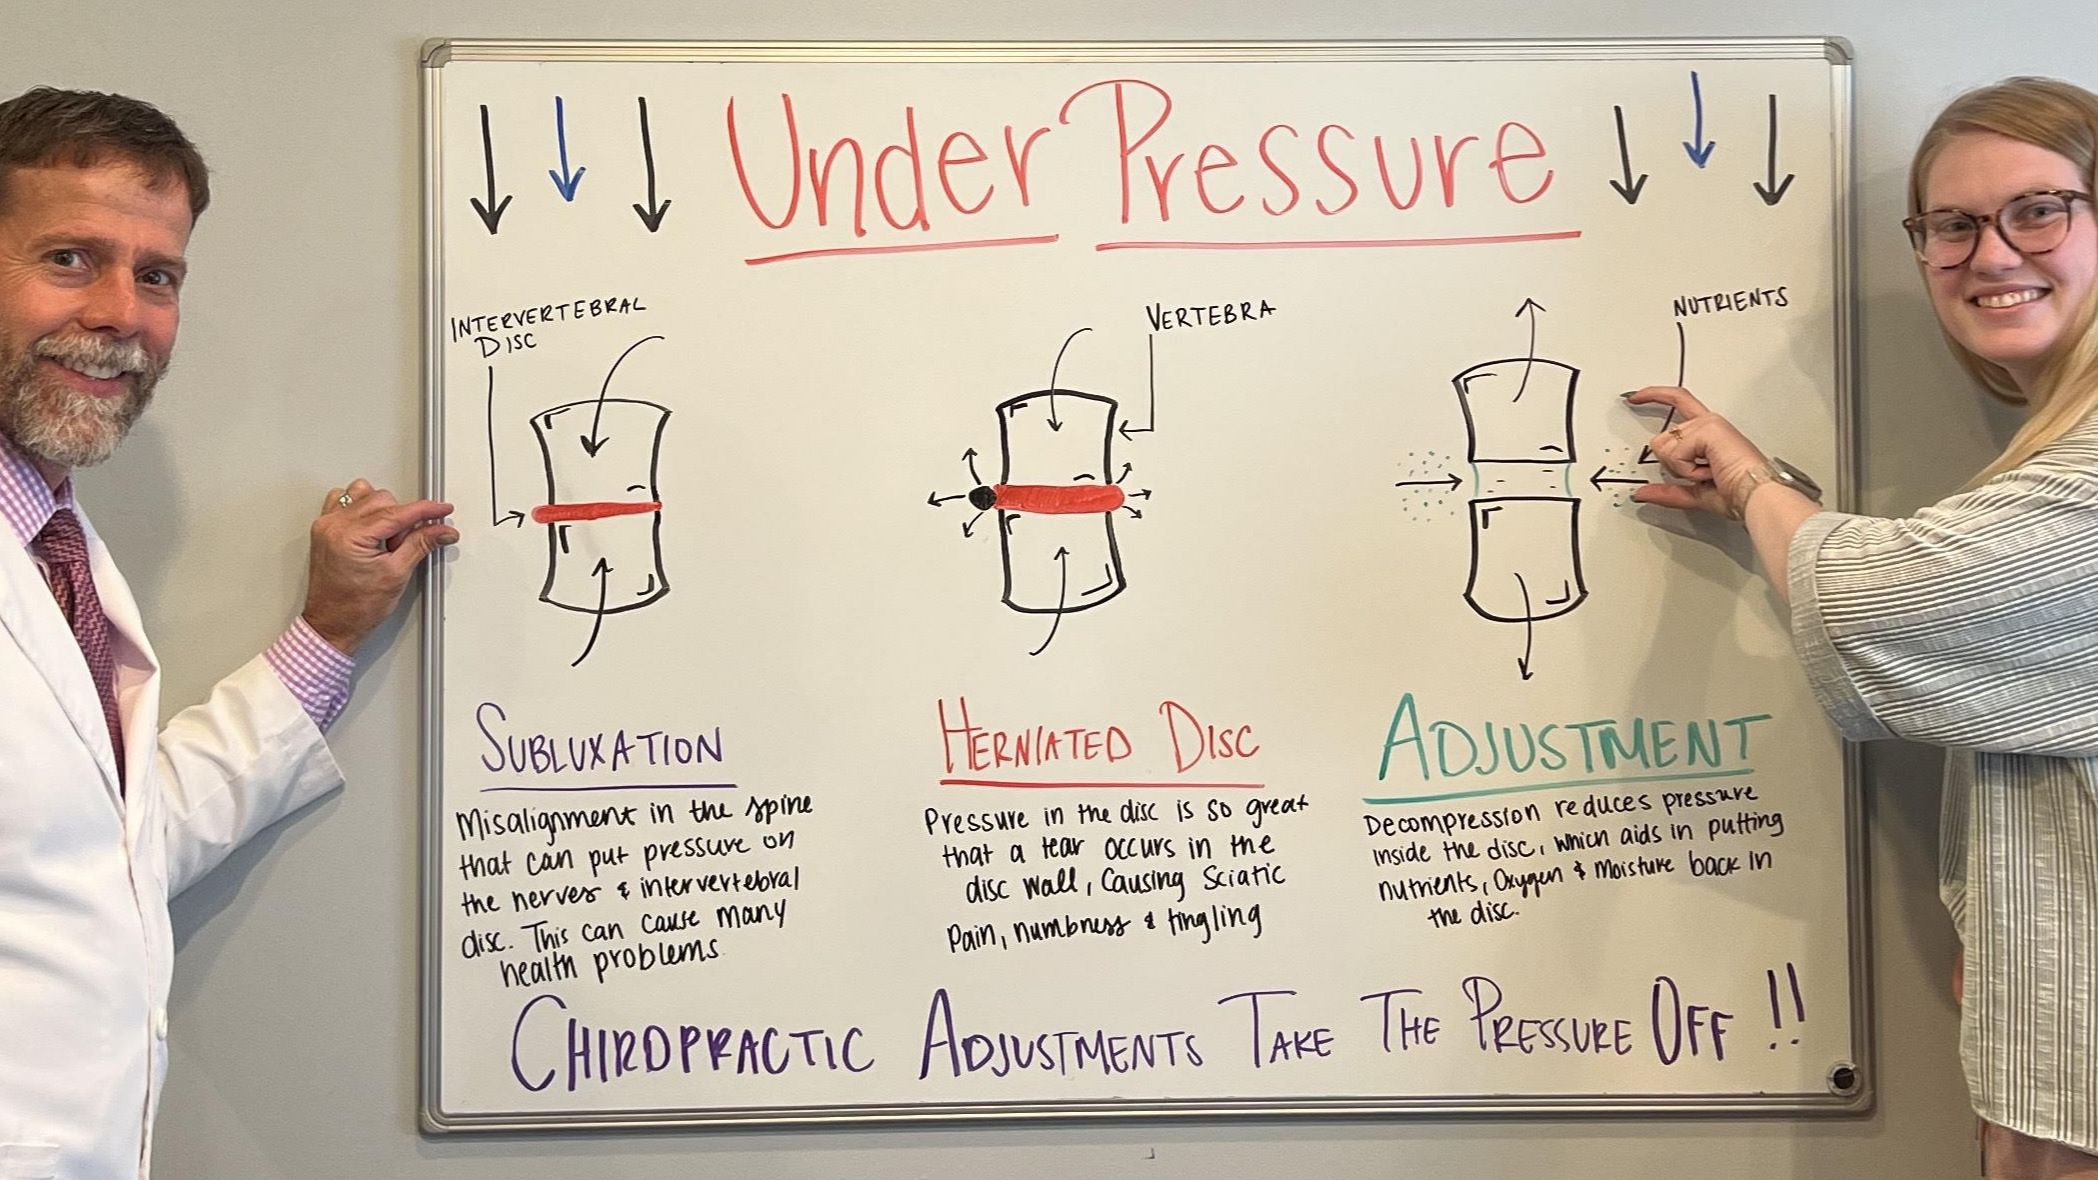 Under Pressure
INTERVERTEBRAL
DISC
VERTEBRA
NUTRIENTS
SUBLUXATION
Misalignment in the spine
that can put pressure on
the nerves & intervertebral
disc. This can cause many
health problems.
HERNIATED DISC
Pressure in the disc is so great
that a tear occurs in the
disc wall, causing Sciatic
Pain, numbness & tingling
ADJUSTMENT
Decompression reduces pressure
inside the disc, which aids in putting
nutrients, Oxygen & Moisture back in
the disc.
CHIROPRACTIC ADJUSTMENTS TAKE THE PRESSURE OFF!!